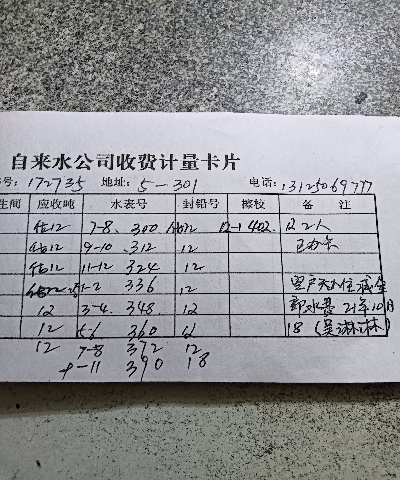 自来水公司收费计量卡片
号: 172735 地址: 5-301 电话: 13125069777
生间 应收吨 水表号 封铅号 擦校 备 注
估12 7-8. 300 12 12-1 402. 2人
估12 9-10 .312 12 已办卡
估12 11-12 324 12
1-2 336 12
12 3-4. 348. 12 水费 21年10月
12 5-6 360 12 18 (吴淋淋)
12 7-8 372 12
9-11 390 18